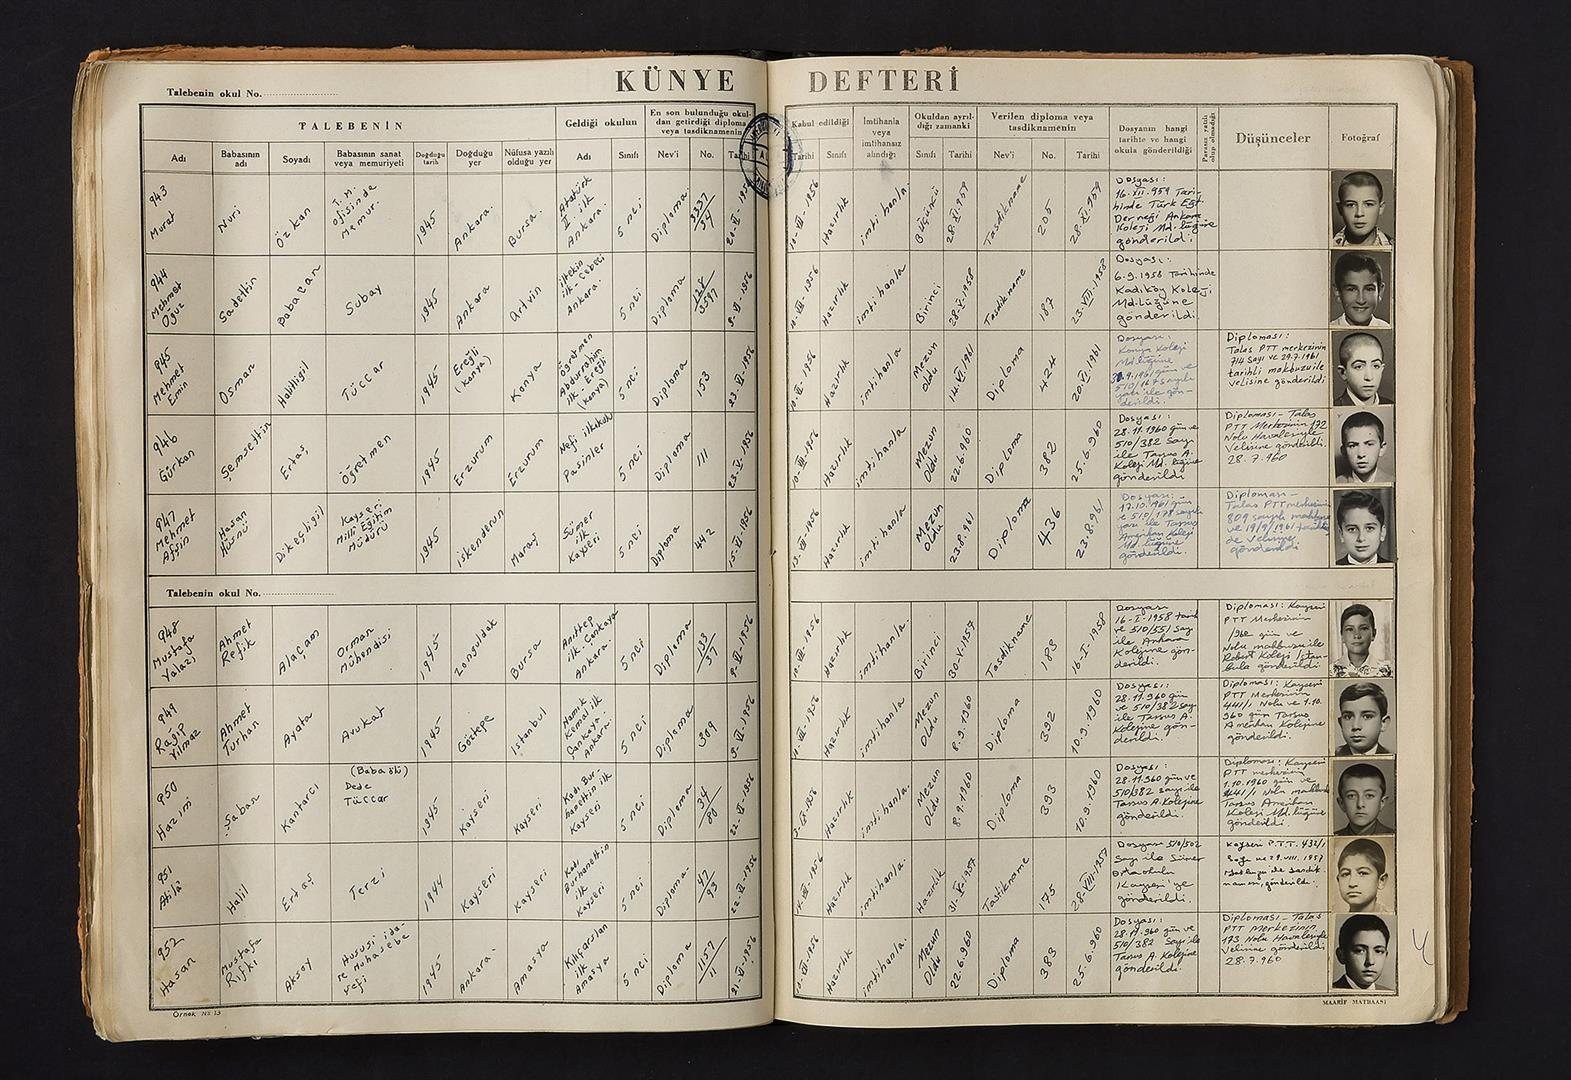 KÜNYE DEFTERİ
Talebenin okul No.
TALEBENİN
Geldiği okulun
En son bulunduğu okul-
dan getirdiği diploma
veya tasdiknamenin
Kabul edildiği
İmtihanla
veya
imtihansız
alındığı
Okuldan ayrıl-
dığı zamanki
Verilen diploma veya
tasdiknamenin
Dosyanın hangi
tarihte ve hangi
okula gönderildiği
Parasız yatılı
olup olmadığı
Düşünceler
Fotoğraf
Adı
Babasının
adı
Soyadı
Babasının sanat
veya memuriyeti
Doğduğu
tarih
Doğduğu
yer
Nüfusa yazılı
olduğu yer
Adı
Sınıfı
Nev'i
No.
Tarihi
Tarihi
Sınıfı
Sınıfı
Tarihi
Nev'i
No.
Tarihi
943
Murat
Nuri
Özkan
T. M.
ofisinde
Memur.
1945
Ankara.
Bursa.
Atatürk
II ilk
Ankara.
5 nci
Diploma
3337/34
20-VI-1956
Hazırlık
imtihanla
Üçüncü
28-XI-959
Tasdikname
205
28-XI-959
Dosyası:
16-XII-959 Tari-
hinde Türk Eğt.
Derneği Ankara
Koleji Md.lüğüne
gönderildi
944
Mehmet
Oğuz
Sadettin
Babacan
Subay
1945
Ankara
Artvin
iltekin
ilk-Cebeci
Ankara.
5 nci
Diploma
9-VI-1956
Hazırlık
imtihanla
Birinci
28-X-1958
Tasdikname
187
23-VIII-1958
Dosyası:
6-9-1958 Tarihinde
Kadıköy Koleji
Md.lüğüne
gönderildi.
945
Mehmet
Emin
Osman
Halilligil
Tüccar
1945
Ereğli
(Konya)
Konya
Öğretmen
Abdurrahim
ilk Ereğli
(Konya)
5 nci
Diploma
153
23-VI-1956
Hazırlık
imtihanla
Mezun
oldu
14-VI-1961
Diploma
424
20-VI-1961
Dosyası:
Konya Koleji
Md.lüğüne
Diploması:
Talas PTT merkezinin
714 sayı ve 29.7.1961
tarihli makbuzu ile
velisine gönderildi
946
Gürkan
Şemsettin
Ertaş
Öğretmen
1945
Erzurum
Erzurum
Nefi ilkokulu
Pasinler
5 nci
Diploma
111
23-V-1956
Hazırlık
imtihanla
Mezun
Oldu
22-6-960
Diploma
382
25.6.960
Dosyası:
28.11.1960 gün ve
510/382 Sayı
ile Tarsus A.
Koleji Md.lüğüne
gönderildi
Diploması - Talas
PTT Merkezinin 172
Nolu Havalesiyle
Velisine gönderildi.
28.7.960
947
Mehmet
Afşin
Hasan
Hüsnü
Dikeçligil
Kayseri
Milli Eğitim
Müdürü
1945
iskenderun
Maraş
Sümer
ilk
Kayseri
5 nci
Diploma
442
15-VI-1956
Hazırlık
imtihanla
Mezun
Oldu
23.8.961
Diploma
436
23.8.961
Dosyası:
17.10.1961 gün
ve 510/178 sayılı
yazı ile Tarsus
Amerikan Koleji
Md.lüğüne
gönderildi.
Diploması -
Talas PTT merkezinin
809 sayılı makbuz
ve 19/9/1961 tarihin
de velisine
gönderildi
Talebenin okul No.
948
Mustafa
Yalazı
Ahmet
Refik
Alaçam
Orman
Mühendisi
1945
Zonguldak
Bursa
Anıttep
ilk Çankaya
Ankara.
5 nci
Diploma
133/37
9-VI-1956
Hazırlık
imtihanla.
Birinci
30-X-1957
Tasdikname
183
16-I-1958
Dosyası
16-I-1958 tarih
ve 510/551 sayı
ile Ankara
Kolejine gön-
derildi.
Diploması: Kayseri
PTT Merkezinin
1961 gün ve
Nolu makbuzu ile
Robert Koleji İstan-
bula gönderildi
949
Ragıp
Yılmaz
Ahmet
Turhan
Ayata
Avukat
1945
Göztepe
istanbul
Namık
Kemal ilk
Çankaya
Ankara.
5 nci
Diploma
309
9-VI-1956
Hazırlık
imtihanla
Mezun
Oldu
8.9.1960
Diploma
392
10.9.1960
Dosyası:
28.11.960 gün
ve 510/382 sayı
ile Tarsus A.
Kolejine gön-
derildi.
Diploması: Kayseri
PTT Merkezinin
441/1 Nolu ve 1.10.
960 gün Tarsus
Amerikan Kolejine
gönderildi.
950
Hazım
Şaban
Kantarcı
(Baba ölü)
Dede
Tüccar
1945
Kayseri
Kayseri
Kadı Bur-
hanettin ilk
Kayseri
5 nci
Diploma
34/86
22-VI-1956
Hazırlık
imtihanla.
Mezun
Oldu
8.9.1960
Diploma
393
10.9.1960
Dosyası:
28.11.960 gün ve
510/382 sayı ile
Tarsus A. Kolejine
gönderildi.
Diploması: Kayseri
PTT merkezinin
1.10.1960 gün ve
441/1 Nolu makbuzu
Tarsus Amerikan
Koleji Md.lüğüne
gönderildi.
951
Atilâ
Halil
Ertaş
Terzi
1944
Kayseri
Kayseri
Kadı
Burhanettin
ilk
Kayseri
5 nci
Diploma-
47/93
22-VI-1956
Hazırlık
imtihanla.
Hazırlık
31-X-1957
Tasdikname
175
28-VIII-1957
Dosyası 510/502
Sayı ile Sümer
Ortaokulu
Kayseri'ye
gönderildi.
Kayseri P.T.T. 432/1
Sayı ve 29.VIII.1957
makbuzu ile tasdik
namesi, gönderildi.
952
Hasan
Mustafa
Rıfkı
Aksoy
Hususi ida-
re Muhasebe
Şefi
1945
Ankara.
Amasya
Kılıçarslan
ilk
Amasya
5 nci
Diploma
1157/11
21-VI-1956
Hazırlık
imtihanla.
Mezun
Oldu
22-6-960
Diploma
383
25.6.960
Dosyası:
28.11.960 gün ve
510/382 Sayı ile
Tarsus A. Kolejine
gönderildi.
Diploması - Talas
PTT Merkezinin
173 Nolu Havalesiyle
Velisine gönderildi
28.7.960
Örnek No 13
MAARİF MATBAASI